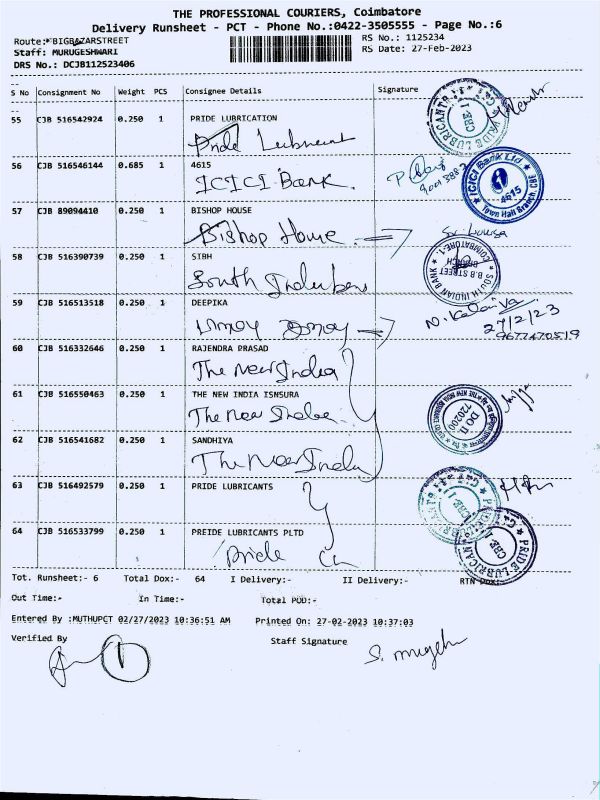 THE PROFESSIONAL COURIERS, Coimbatore
Delivery Runsheet - PCT - Phone No.:0422-3505555 - Page No.:6
Route:*BIGBAZARSTREET
RS No.: 1125234
Staff: MURUGESHWARI
RS Date: 27-Feb-2023
DRS No.: DCJB112523406
S No Consignment No Weight PCS Consignee Details Signature
55 CJB 516542924 0.250 1 PRIDE LUBRICATION
Pride Lubricant
PRIDE LUBRICANTS CBE-1
56 CJB 516546144 0.685 1 4615
ICICI Bank.
ICICI Bank Ltd 4615 Town Hall Branch, CBE
57 CJB 89094410 0.250 1 BISHOP HOUSE
Bishop House
58 CJB 516390739 0.250 1 SIBH
SOUTH INDIAN BANK B.B STREET BRANCH COIMBATORE-1
59 CJB 516513518 0.250 1 DEEPIKA
27/2/23
9677470519
60 CJB 516332646 0.250 1 RAJENDRA PRASAD
The New India
61 CJB 516550463 0.250 1 THE NEW INDIA ISNSURA
The New India
DO II
720200
62 CJB 516541682 0.250 1 SANDHIYA
The New India
63 CJB 516492579 0.250 1 PRIDE LUBRICANTS
PRIDE LUBRICANTS CBE-1
64 CJB 516533799 0.250 1 PREIDE LUBRICANTS PLTD
Pride
PRIDE LUBRICANTS CBE-1
Tot. Runsheet:- 6 Total Dox:- 64 I Delivery:- II Delivery:- RTN Dox:
Out Time:- In Time:- Total POD:-
Entered By :MUTHUPCT 02/27/2023 10:36:51 AM Printed On: 27-02-2023 10:37:03
Verified By Staff Signature